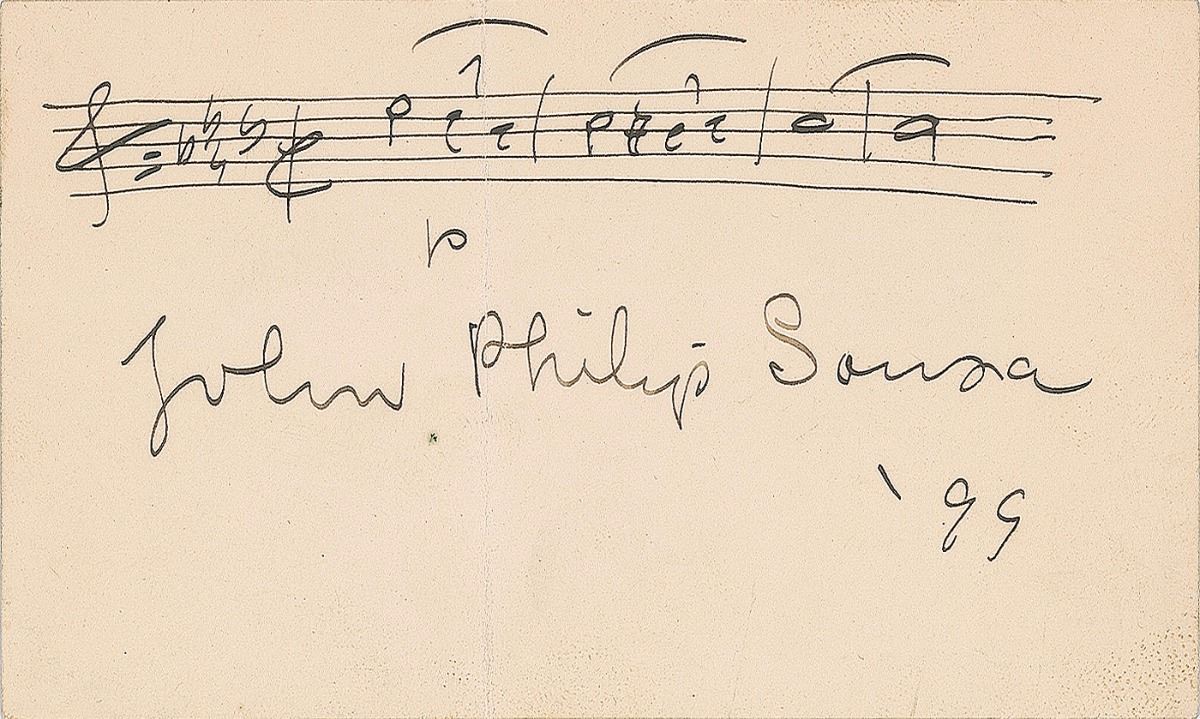 p
John Philip Sousa
'99